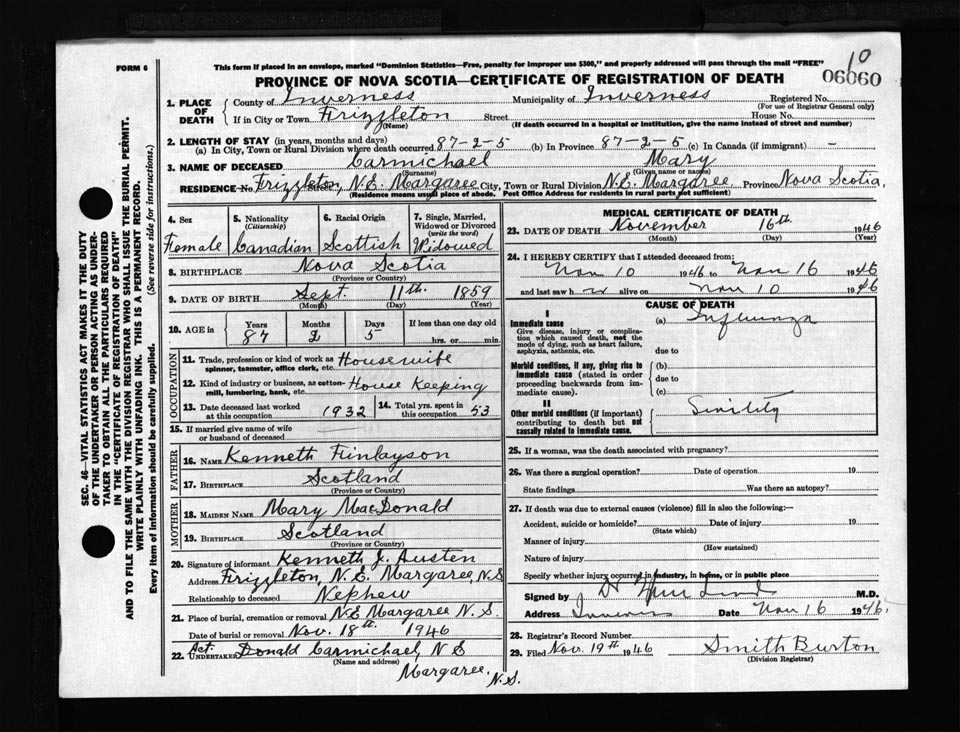 10
FORM 6
This form if placed in an envelope, marked "Dominion Statistics—Free, penalty for improper use $300," and properly addressed will pass through the mail "FREE"
PROVINCE OF NOVA SCOTIA—CERTIFICATE OF REGISTRATION OF DEATH
06060
1. PLACE OF DEATH
County of Inverness Municipality of Inverness Registered No.
(For use of Registrar General only)
If in City or Town Frizzleton Street House No.
(Name) (If death occurred in a hospital or institution, give the name instead of street and number)
2. LENGTH OF STAY (in years, months and days)
(a) In City, Town or Rural Division where death occurred 87-2-5 (b) In Province 87-2-5 (c) In Canada (if immigrant) -
3. NAME OF DECEASED Carmichael Mary
(Surname) (Given name or names)
RESIDENCE No. Frizzleton, N.E. Margaree City, Town or Rural Division N.E. Margaree Province Nova Scotia,
(Residence means usual place of abode. Post Office Address for residents in rural parts not sufficient)
4. Sex
Female
5. Nationality
(Citizenship)
Canadian
6. Racial Origin
Scottish
7. Single, Married, Widowed or Divorced
(write the word)
Widowed
8. BIRTHPLACE Nova Scotia
(Province or Country)
9. DATE OF BIRTH Sept. 11th. 1859
(Month) (Day) (Year)
10. AGE in Years Months Days If less than one day old
87 2 5 hrs. or min.
OCCUPATION
11. Trade, profession or kind of work as Housewife
spinner, teamster, office clerk, etc.
12. Kind of industry or business, as cotton- House Keeping
mill, lumbering, bank, etc.
13. Date deceased last worked at this occupation 1932
14. Total yrs. spent in this occupation 53
15. If married give name of wife or husband of deceased
FATHER
16. NAME Kenneth Finlayson
17. BIRTHPLACE Scotland
(Province or Country)
MOTHER
18. MAIDEN NAME Mary MacDonald
19. BIRTHPLACE Scotland
(Province or Country)
20. Signature of informant Kenneth J. Austen
Address Frizzleton, N.E. Margaree, N.S
Relationship to deceased Nephew
21. Place of burial, cremation or removal N-E Margaree N.S.
Date of burial or removal Nov. 18th. 1946
22. Act. UNDERTAKER Donald Carmichael, N S
(Name and address)
Margaree, N.S.
MEDICAL CERTIFICATE OF DEATH
23. DATE OF DEATH November 16th 1946
(Month) (Day) (Year)
24. I HEREBY CERTIFY that I attended deceased from:
Nov 10 1946 to Nov 16 1946
and last saw h alive on Nov 10 1946
CAUSE OF DEATH
I
Immediate cause (a) Influenza
Give disease, injury or complication which caused death, not the mode of dying, such as heart failure, asphyxia, asthenia, etc.
due to
Morbid conditions, if any, giving rise to immediate cause (stated in order proceeding backwards from immediate cause).
(b)
due to
(c)
II
Other morbid conditions (if important) contributing to death but not causally related to immediate cause.
Senility
25. If a woman, was the death associated with pregnancy?
26. Was there a surgical operation? Date of operation 19
State findings Was there an autopsy?
27. If death was due to external causes (violence) fill in also the following:—
Accident, suicide or homicide? Date of injury 19
(State which)
Manner of injury
(How sustained)
Nature of injury
Specify whether injury occurred in industry, in home, or in public place
Signed by M.D.
Address Date Nov 16 1946
28. Registrar's Record Number
29. Filed Nov. 19th. 1946 Smith Burton
(Division Registrar)
SEC. 46—VITAL STATISTICS ACT MAKES IT THE DUTY
OF THE UNDERTAKER OR PERSON ACTING AS UNDER-
TAKER TO OBTAIN ALL THE PARTICULARS REQUIRED
IN THE "CERTIFICATE OF REGISTRATION OF DEATH"
AND TO FILE THE SAME WITH THE DIVISION REGISTRAR WHO SHALL ISSUE THE BURIAL PERMIT.
WRITE PLAINLY WITH UNFADING INK. THIS IS A PERMANENT RECORD.
Every item of information should be carefully supplied. (See reverse side for instructions.)